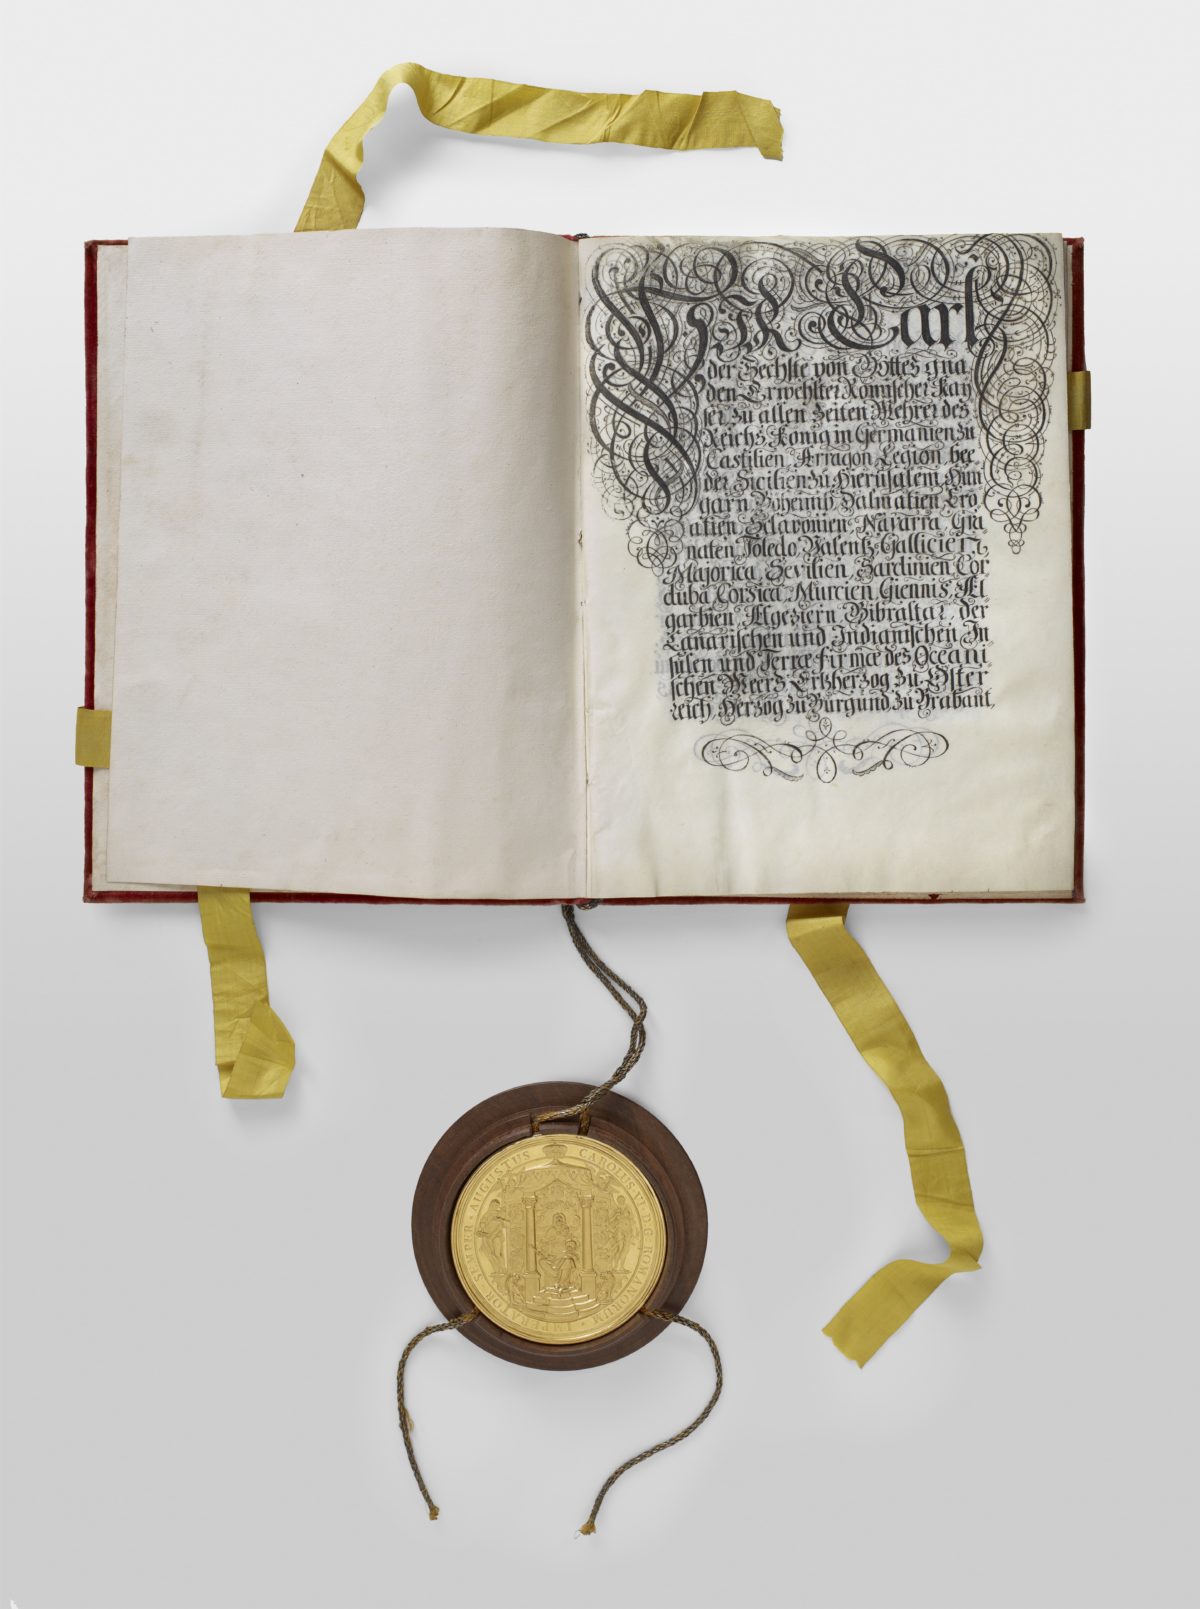 WIR Carl
der Sechste von Gottes gna
den Erwehlter Römischer Kay
ser zu allen Zeiten Mehrer des
Reichs König in Germanien zu
Castilien, Arragon Legion, bee
der Sicilien zu Hierusalem, Hun
garn Böheimb, Dalmatien Cro
atien, Sclavonien, Navarra, Gra
naten, Toledo, Valentz, Gallicien,
Majorica, Sevilien, Sardinien, Cor
duba, Corsica, Murcien, Giennis, Al
garbien, Algeziern, Gibraltar, der
Canarischen und Indianischen In
sulen und Terræ firmæ des Oceani
schen Meers Ertzherzog zu Öster
reich, Herzog zu Burgund, zu Brabant,
CAROLUS VI · D · G · ROMANORUM · IMPERATOR · SEMPER · AUGUSTUS